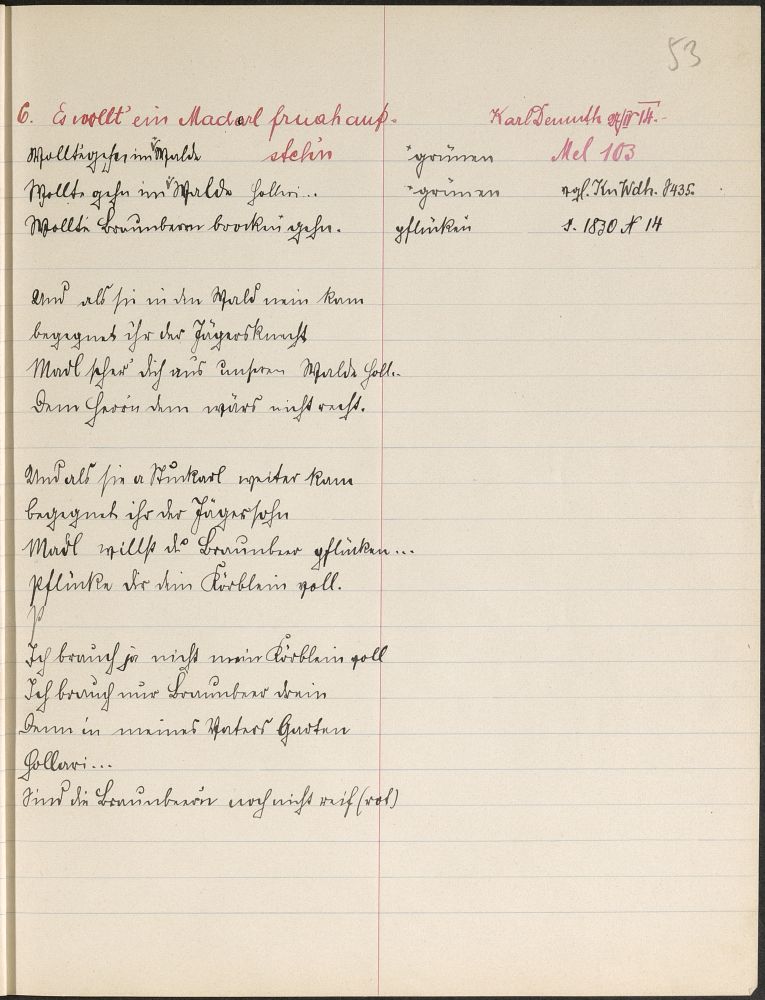 53
6. Es wollt' ein Maderl fruahauf- Karl Demuth 27/II 14.-
stehn
Wollte gehn im ˅ Walde ˅grünen Mel 103
Wollte gehn im ˅ Walde Holleri... ˅grünen vgl. Kn Wdh. S 435.
Wollte Braunbeern brocken gehn. pflücken s. 1830 N 14
Und als sie in den Wald nein kam
begegnet ihr der Jägersknecht
Madl scher' dich aus unseren Walde Holl..
Dem Herrn dem wärs nicht recht.
Und als sie a Stuckarl weiter kam
begegnet ihr der Jägersohn
Madl willst du Braunbeer pflücken...
Pflücke dir dein Körblein voll.
Ich brauch ja nicht mein Körblein voll
Ich brauch nur Braunbeer drein
Denn in meines Vaters Garten
Hollari...
Sind die Braunbeern noch nicht reif (rot)